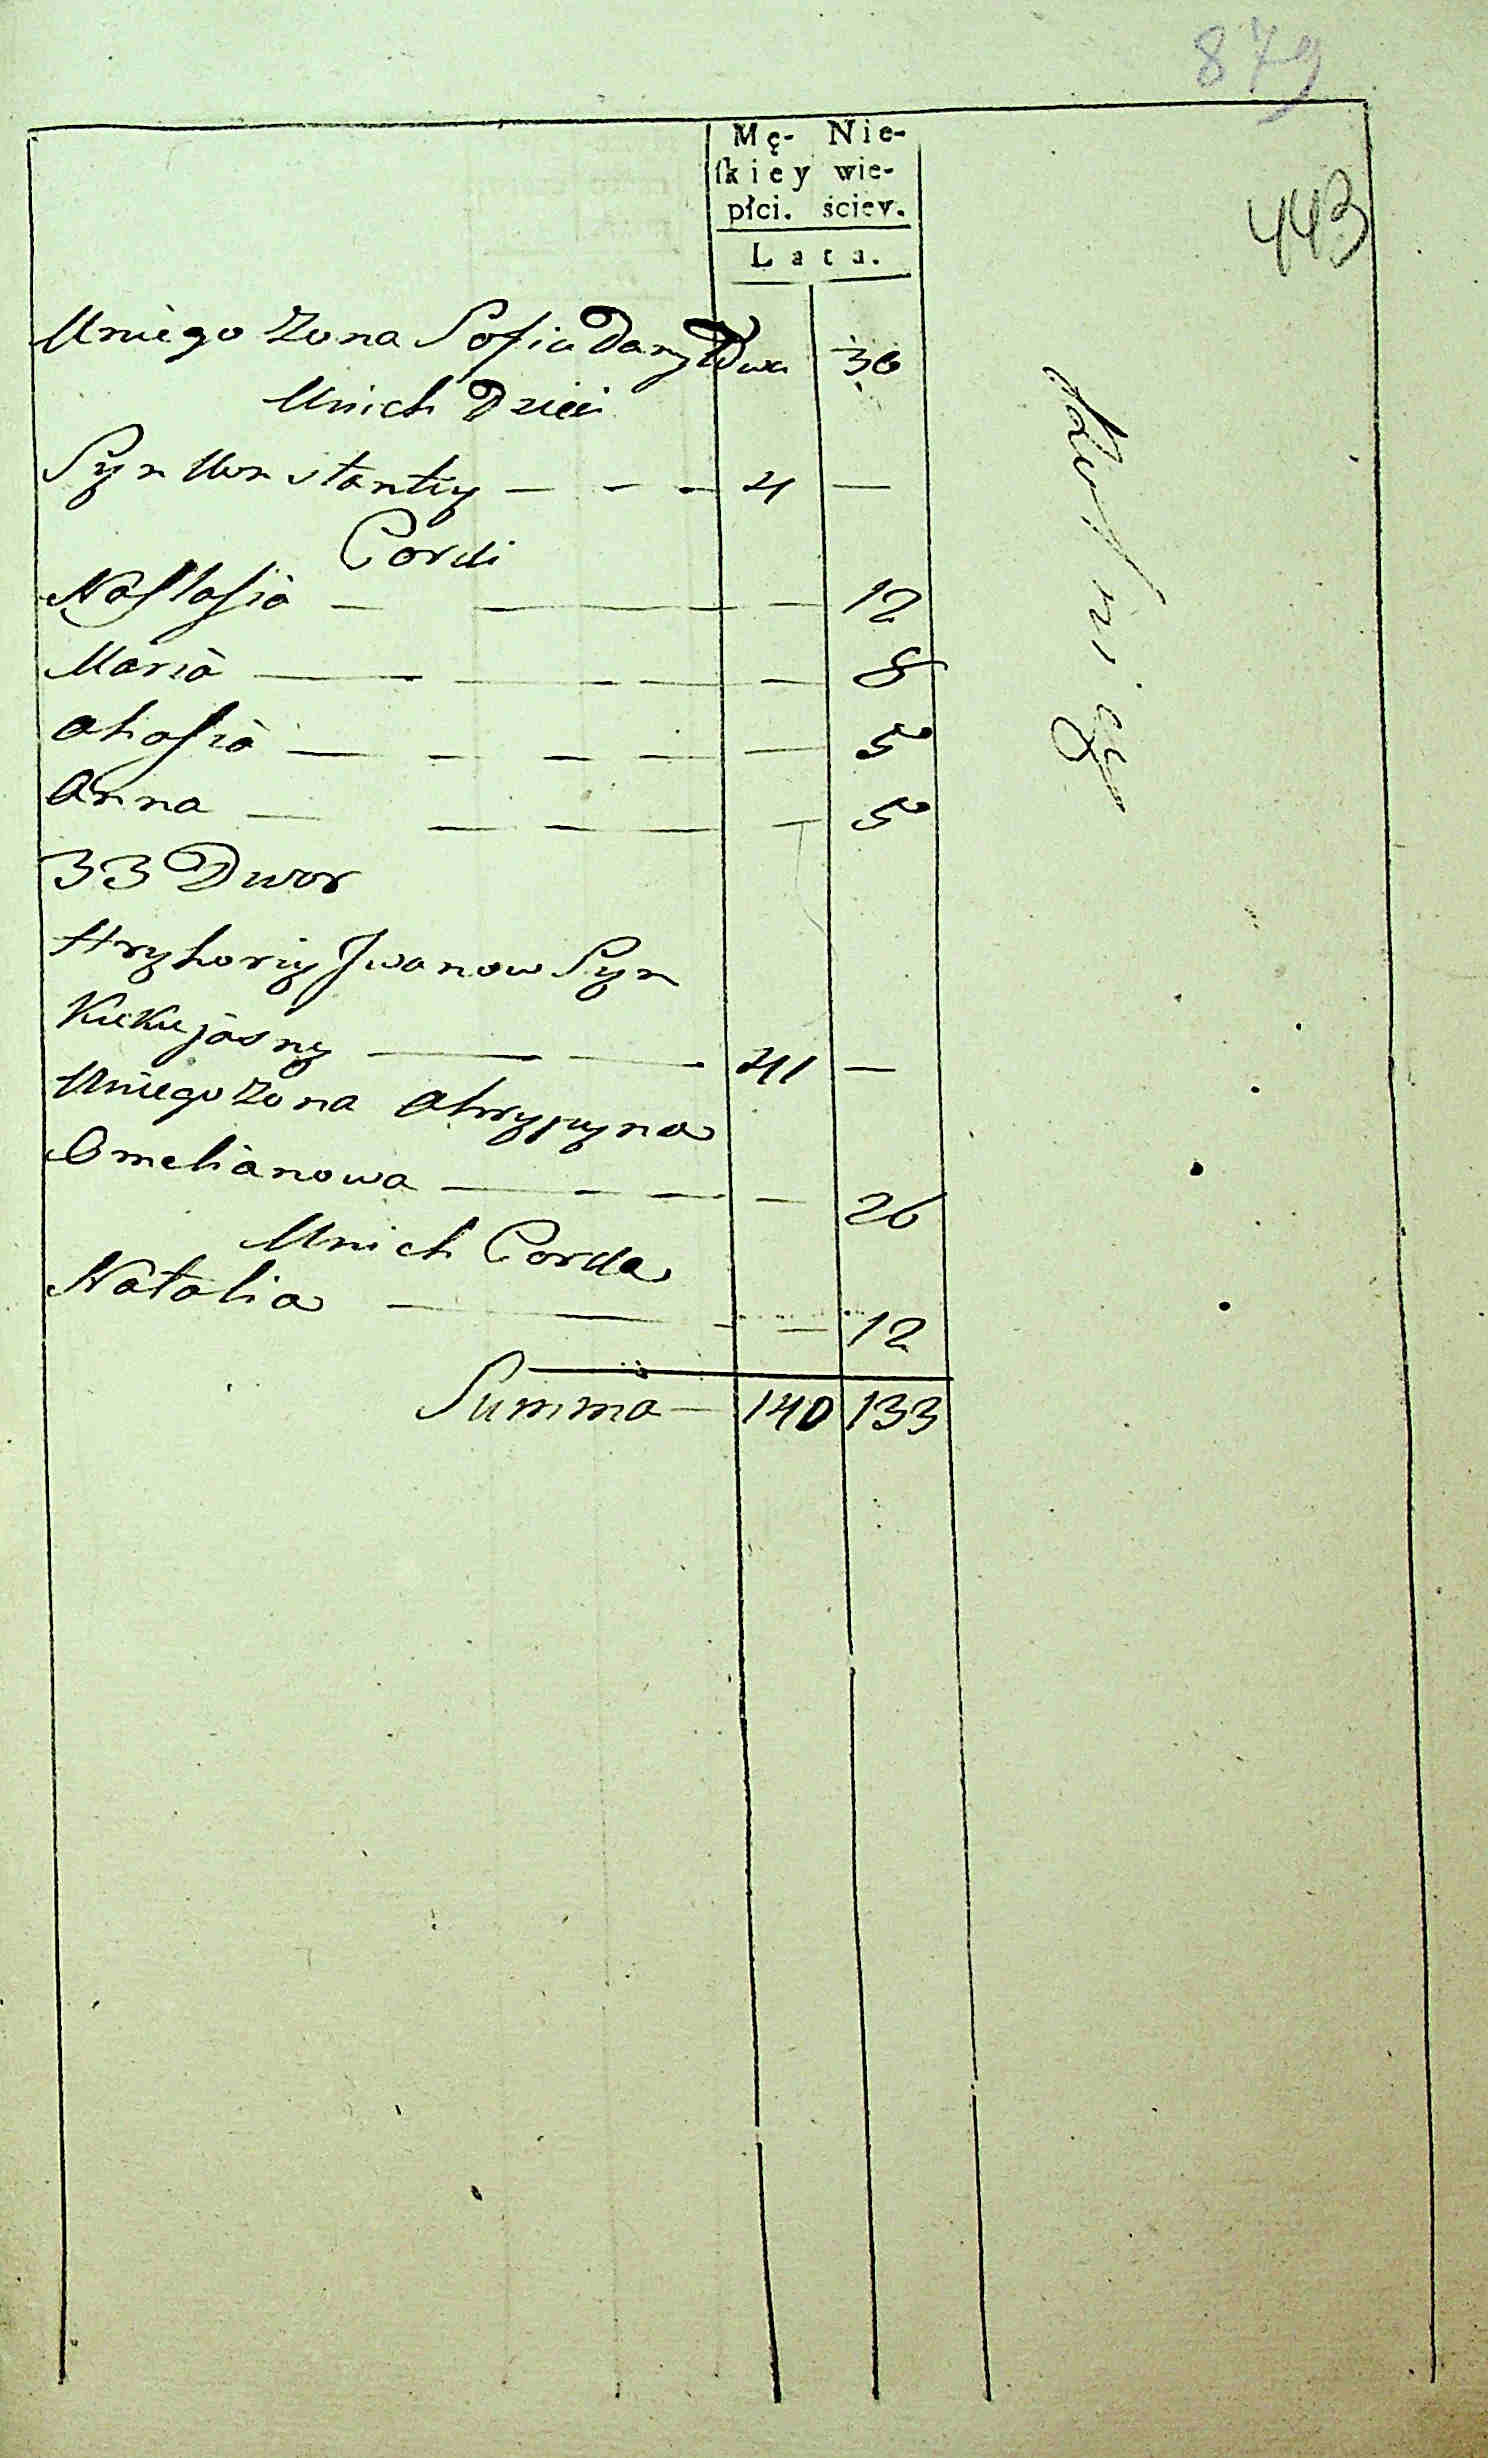 879
443
Mę- Nie-
ſkiey wie-
płci. ściey.
Lata.
Uniego Zona Sofia Danyłowa 36
Unich Dzieci
Syn Konstantiy — - - 4 —
Corki
Nastasia — — — — 12
Maria — — — — — 8
Ahafia — — — — — 5
Anna — — — — — 5
33 Dwor
Hryhoriy Jwanow Syn
Kukujasny — — 41 —
Uniego Zona Ahrypyna
Omelianowa — — — — 26
Unich Corka
Natalia — — — — 12
Summa — 140 133